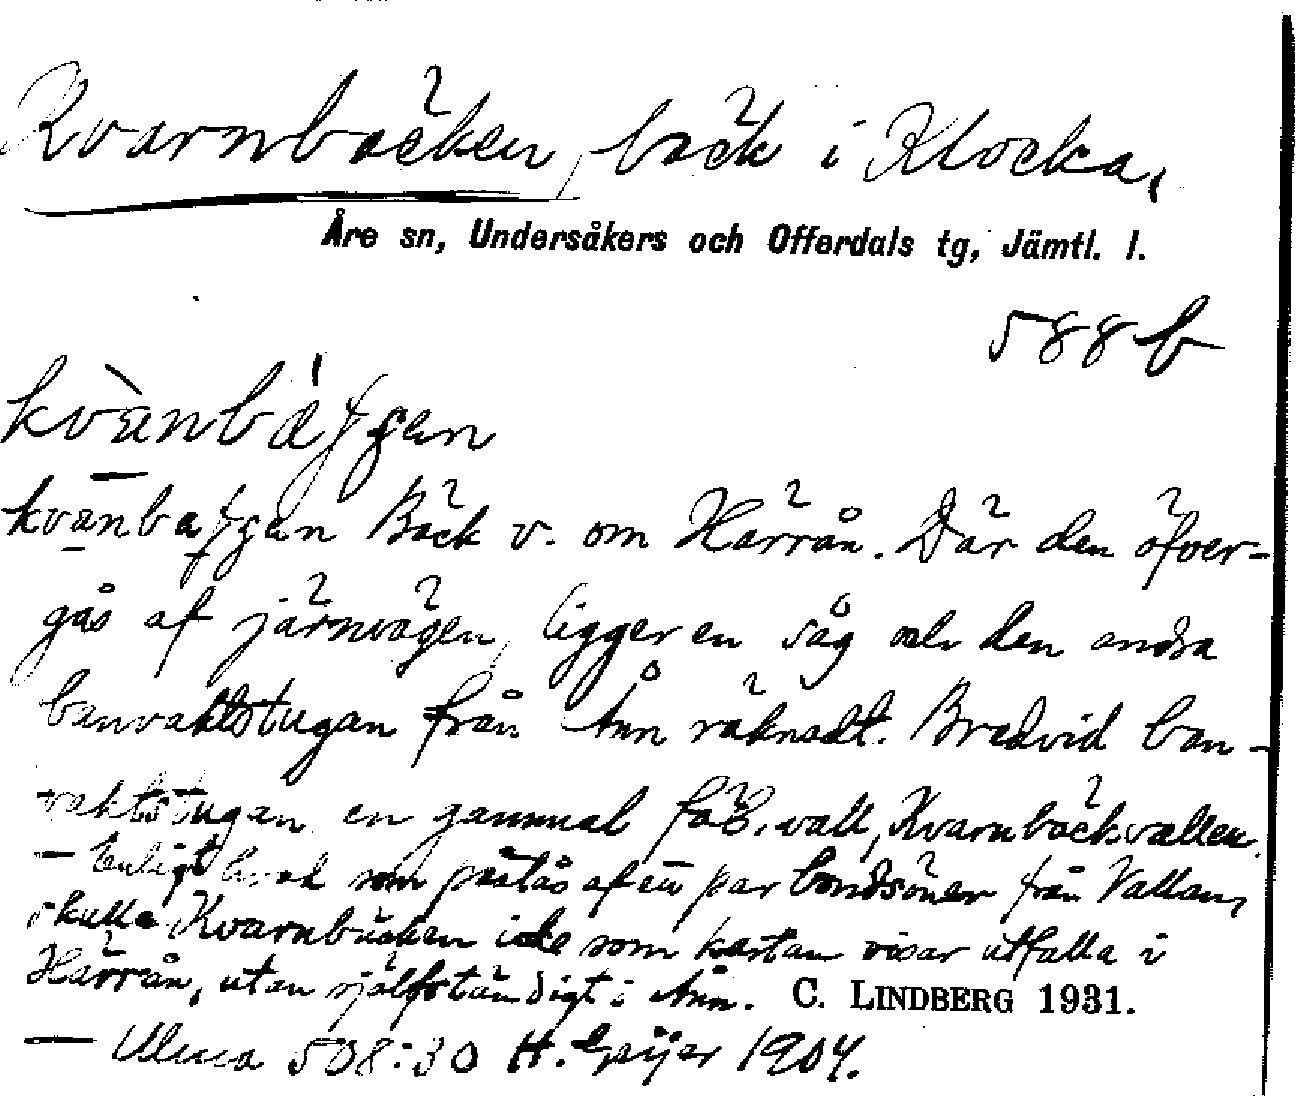 Kvarnbäcken, bäck i Klocka,
Åre sn, Undersåkers och Offerdals tg, Jämtl. l.
588 b
kvanbä
kvanba Bäck v. om Härrån. Där den öfver-
gås af järnvägen, ligger en såg och den andra
banvaktstugan från Ånn räknadt. Bredvid ban-
vaktstugan en gammal fäb.vall, Kvarnbäcksvallen.
— Enligt hvad som påstås af ett par bondsöner från Vallan,
skulle Kvarnbäcken icke som kartan visar utfalla i
Härrån, utan själfständigt i Ånn. C. LINDBERG 1931.
— Ulma 508:30 H. Geijer 1904.